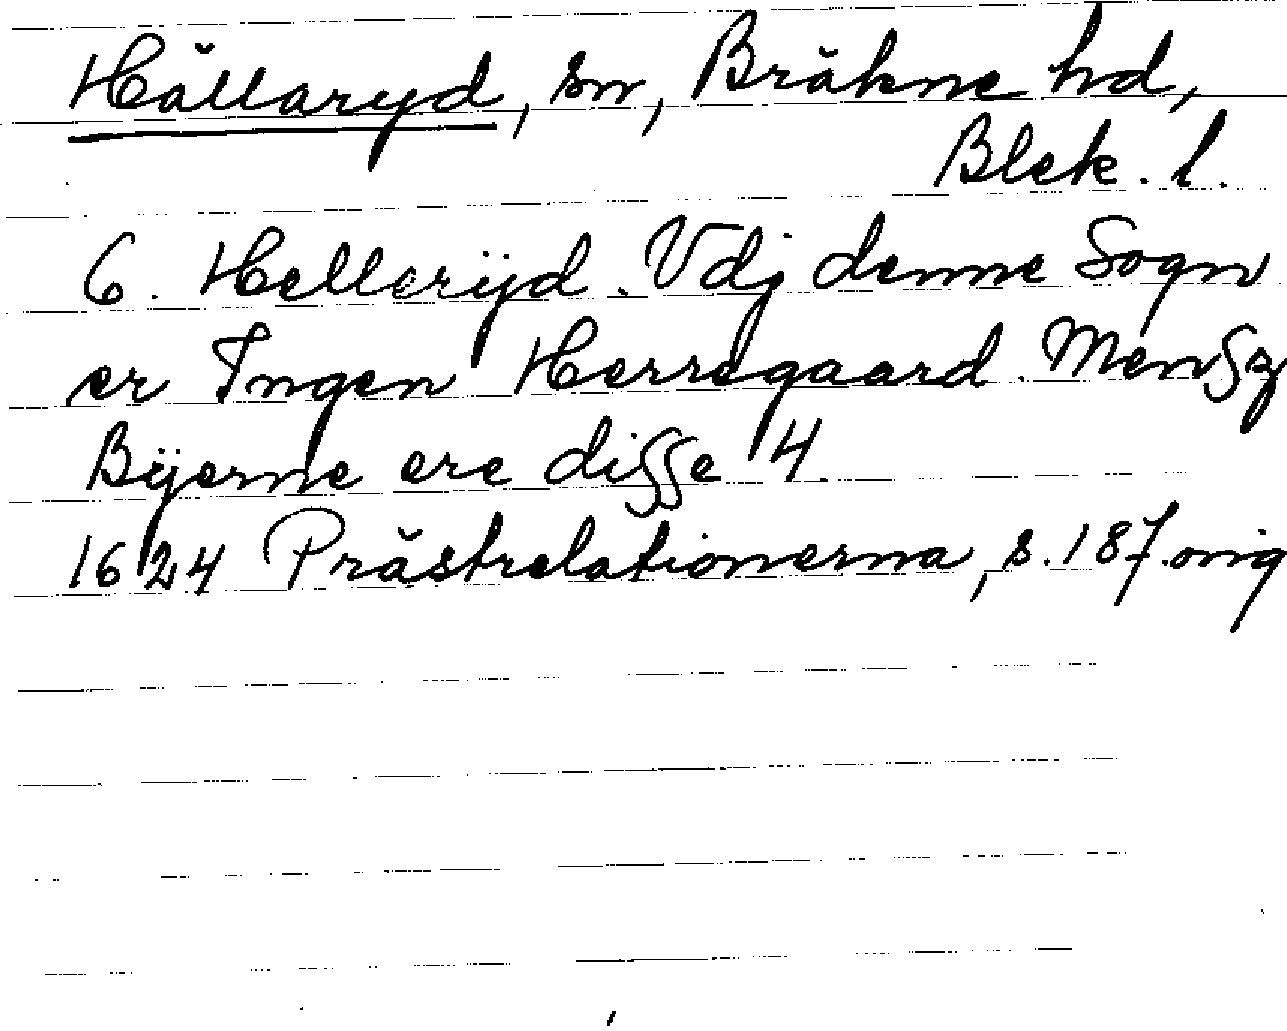 Hällaryd, sn, Bräkne hd,
Blek. l.
6. Hellerÿd. Vdj denne Sogn
er Ingen Herregaard. Men
Bÿerne ere disse 4.
1624 Prästrelationerna, s. 187. orig